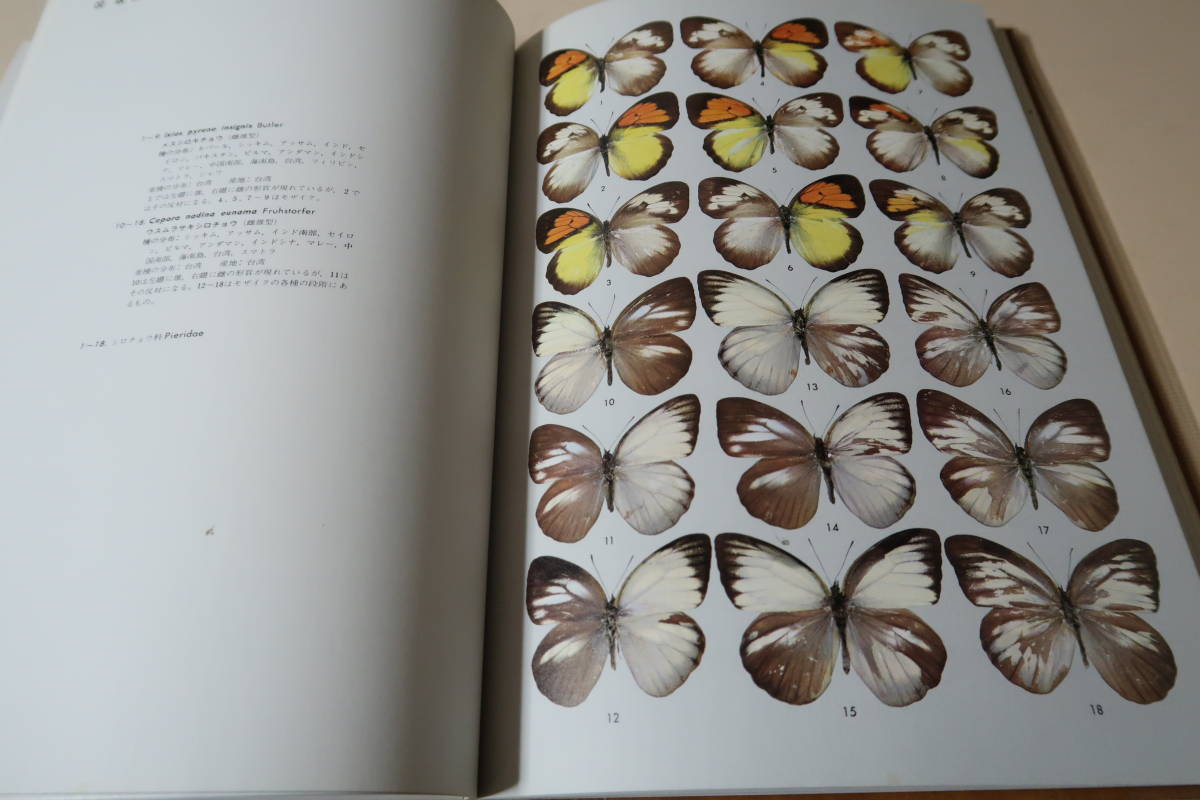 1〜9. Ixias pyrene insignis Butler
メスシロキチョウ (雌雄型)
種の分布: ネパール, シッキム, アッサム, インド, セ
イロン, パキスタン, ビルマ, アンダマン, インドシ
ナ, マレー, 中国南部, 海南島, 台湾, フィリピン,
スマトラ, ジャワ
亜種の分布: 台湾 産地: 台湾
1では左翅に雄, 右翅に雌の形質が現れているが, 2で
はその反対になる. 4, 5, 7〜9はモザイク.
10〜18. Cepora nadina eunama Fruhstorfer
ウスムラサキシロチョウ (雌雄型)
種の分布: シッキム, アッサム, インド南部, セイロ
ン, ビルマ, アンダマン, インドシナ, マレー, 中
国南部, 海南島, 台湾, スマトラ
亜種の分布: 台湾 産地: 台湾
10は左翅に雄, 右翅に雌の形質が現れているが, 11は
その反対になる. 12〜18はモザイクの各種の段階にあ
るもの.
1〜18. シロチョウ科 Pieridae
1
4
7
2
5
8
3
6
9
10
13
16
11
14
17
12
15
18